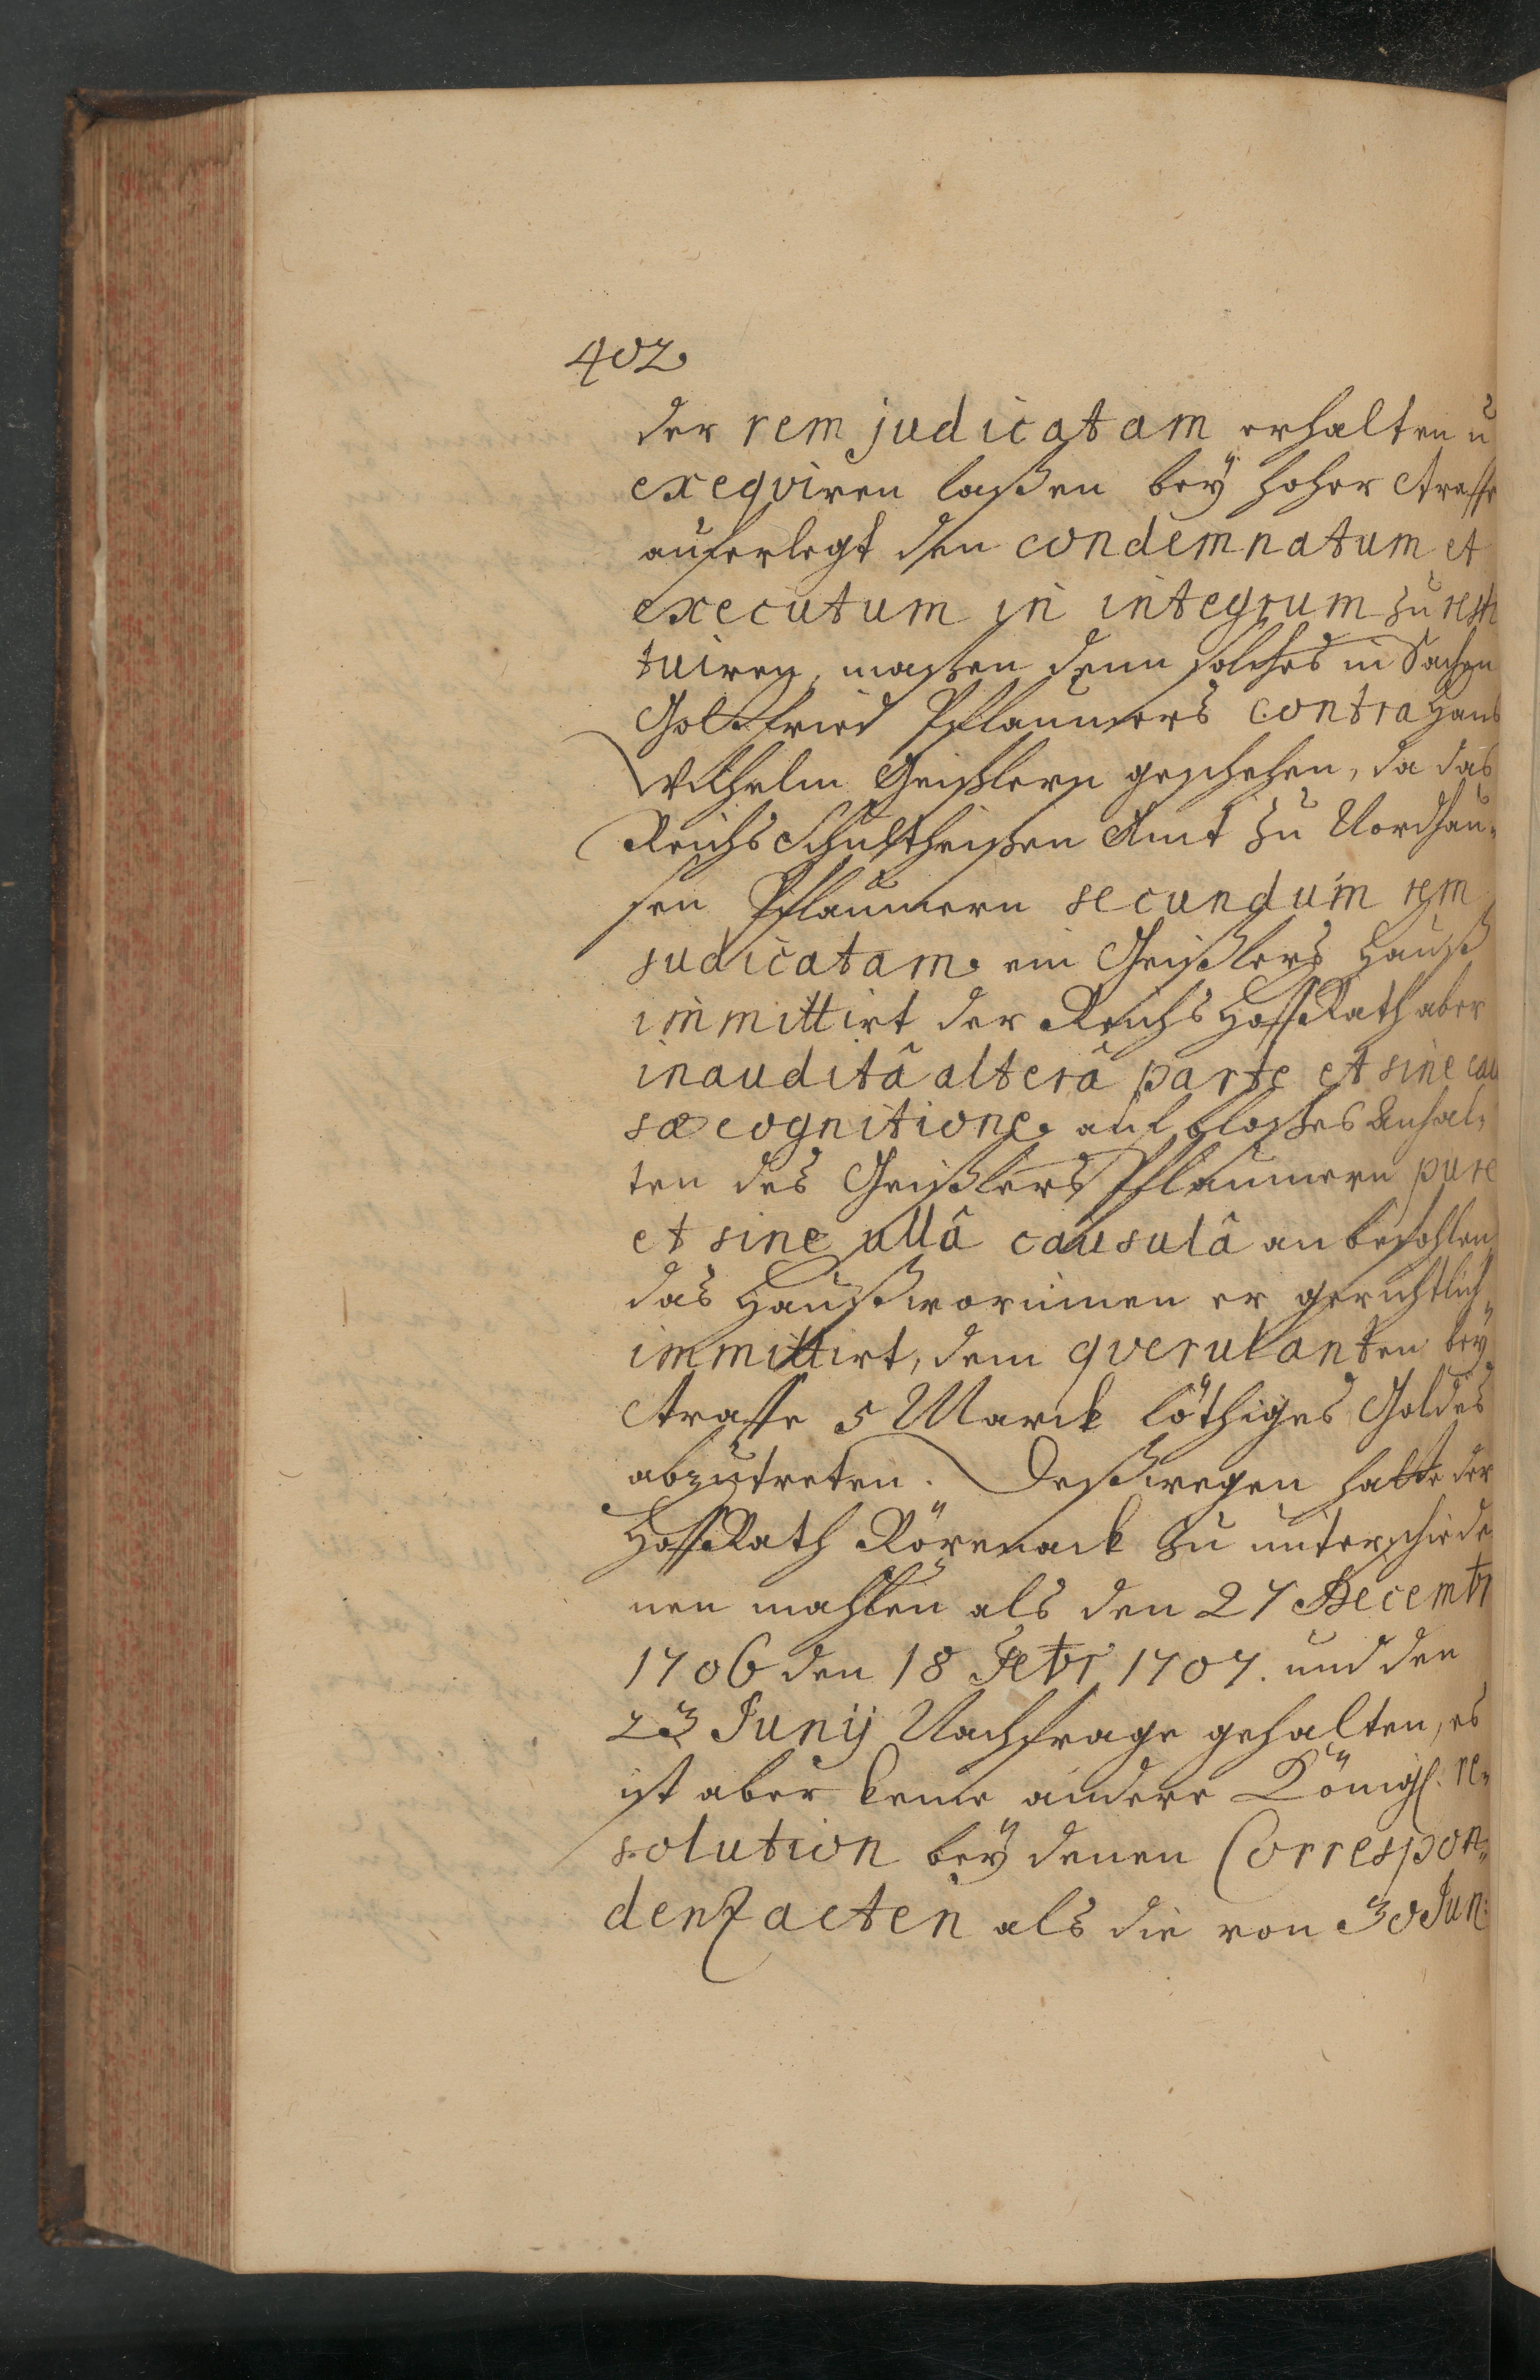 402.
der rem judicatam erhalten u
exeqviren laßen bey hoher Straffe
auferlegt den condemnatum et
executum in integrum zu resti
tuiren, maßen denn solches in Sachen
Gottfried Pflaumers contra Hans
Wilhelm Geißlern geschehen, da das
Reichs Schultheißen Amt zu Nordhau¬
sen Pflaumern secundum rem
judicatam in Geißlers Hauß
immittirt der Reichs HoffRath aber
inauditâ alterâ parte et sine cau
sæ cognitione auf bloßes Anhal¬
ten des Geißlers Pflaumern pure
et sine ullâ causulâ anbefohlen
das Hauß worinnen er gerichtlich
immittirt, dem qverulanten bey
Straffe 5 Marck löthiges Goldes
abzutreten. Deßwegen hatte der
HoffRath Röpenack zu unterschiede
nen mahlen als den 27 Decembr
1706 den 18 Febr 1707. und den
23 Junij Nachfrage gehalten, es
ist aber keine andere Königl. re¬
solution bey denen Correspon¬
denz acten als die von 30 Jun: